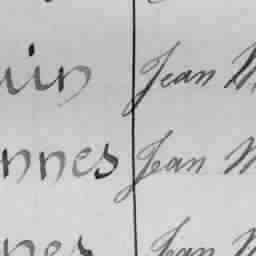 uin Jean M
nnes Jean M
nes Jean M